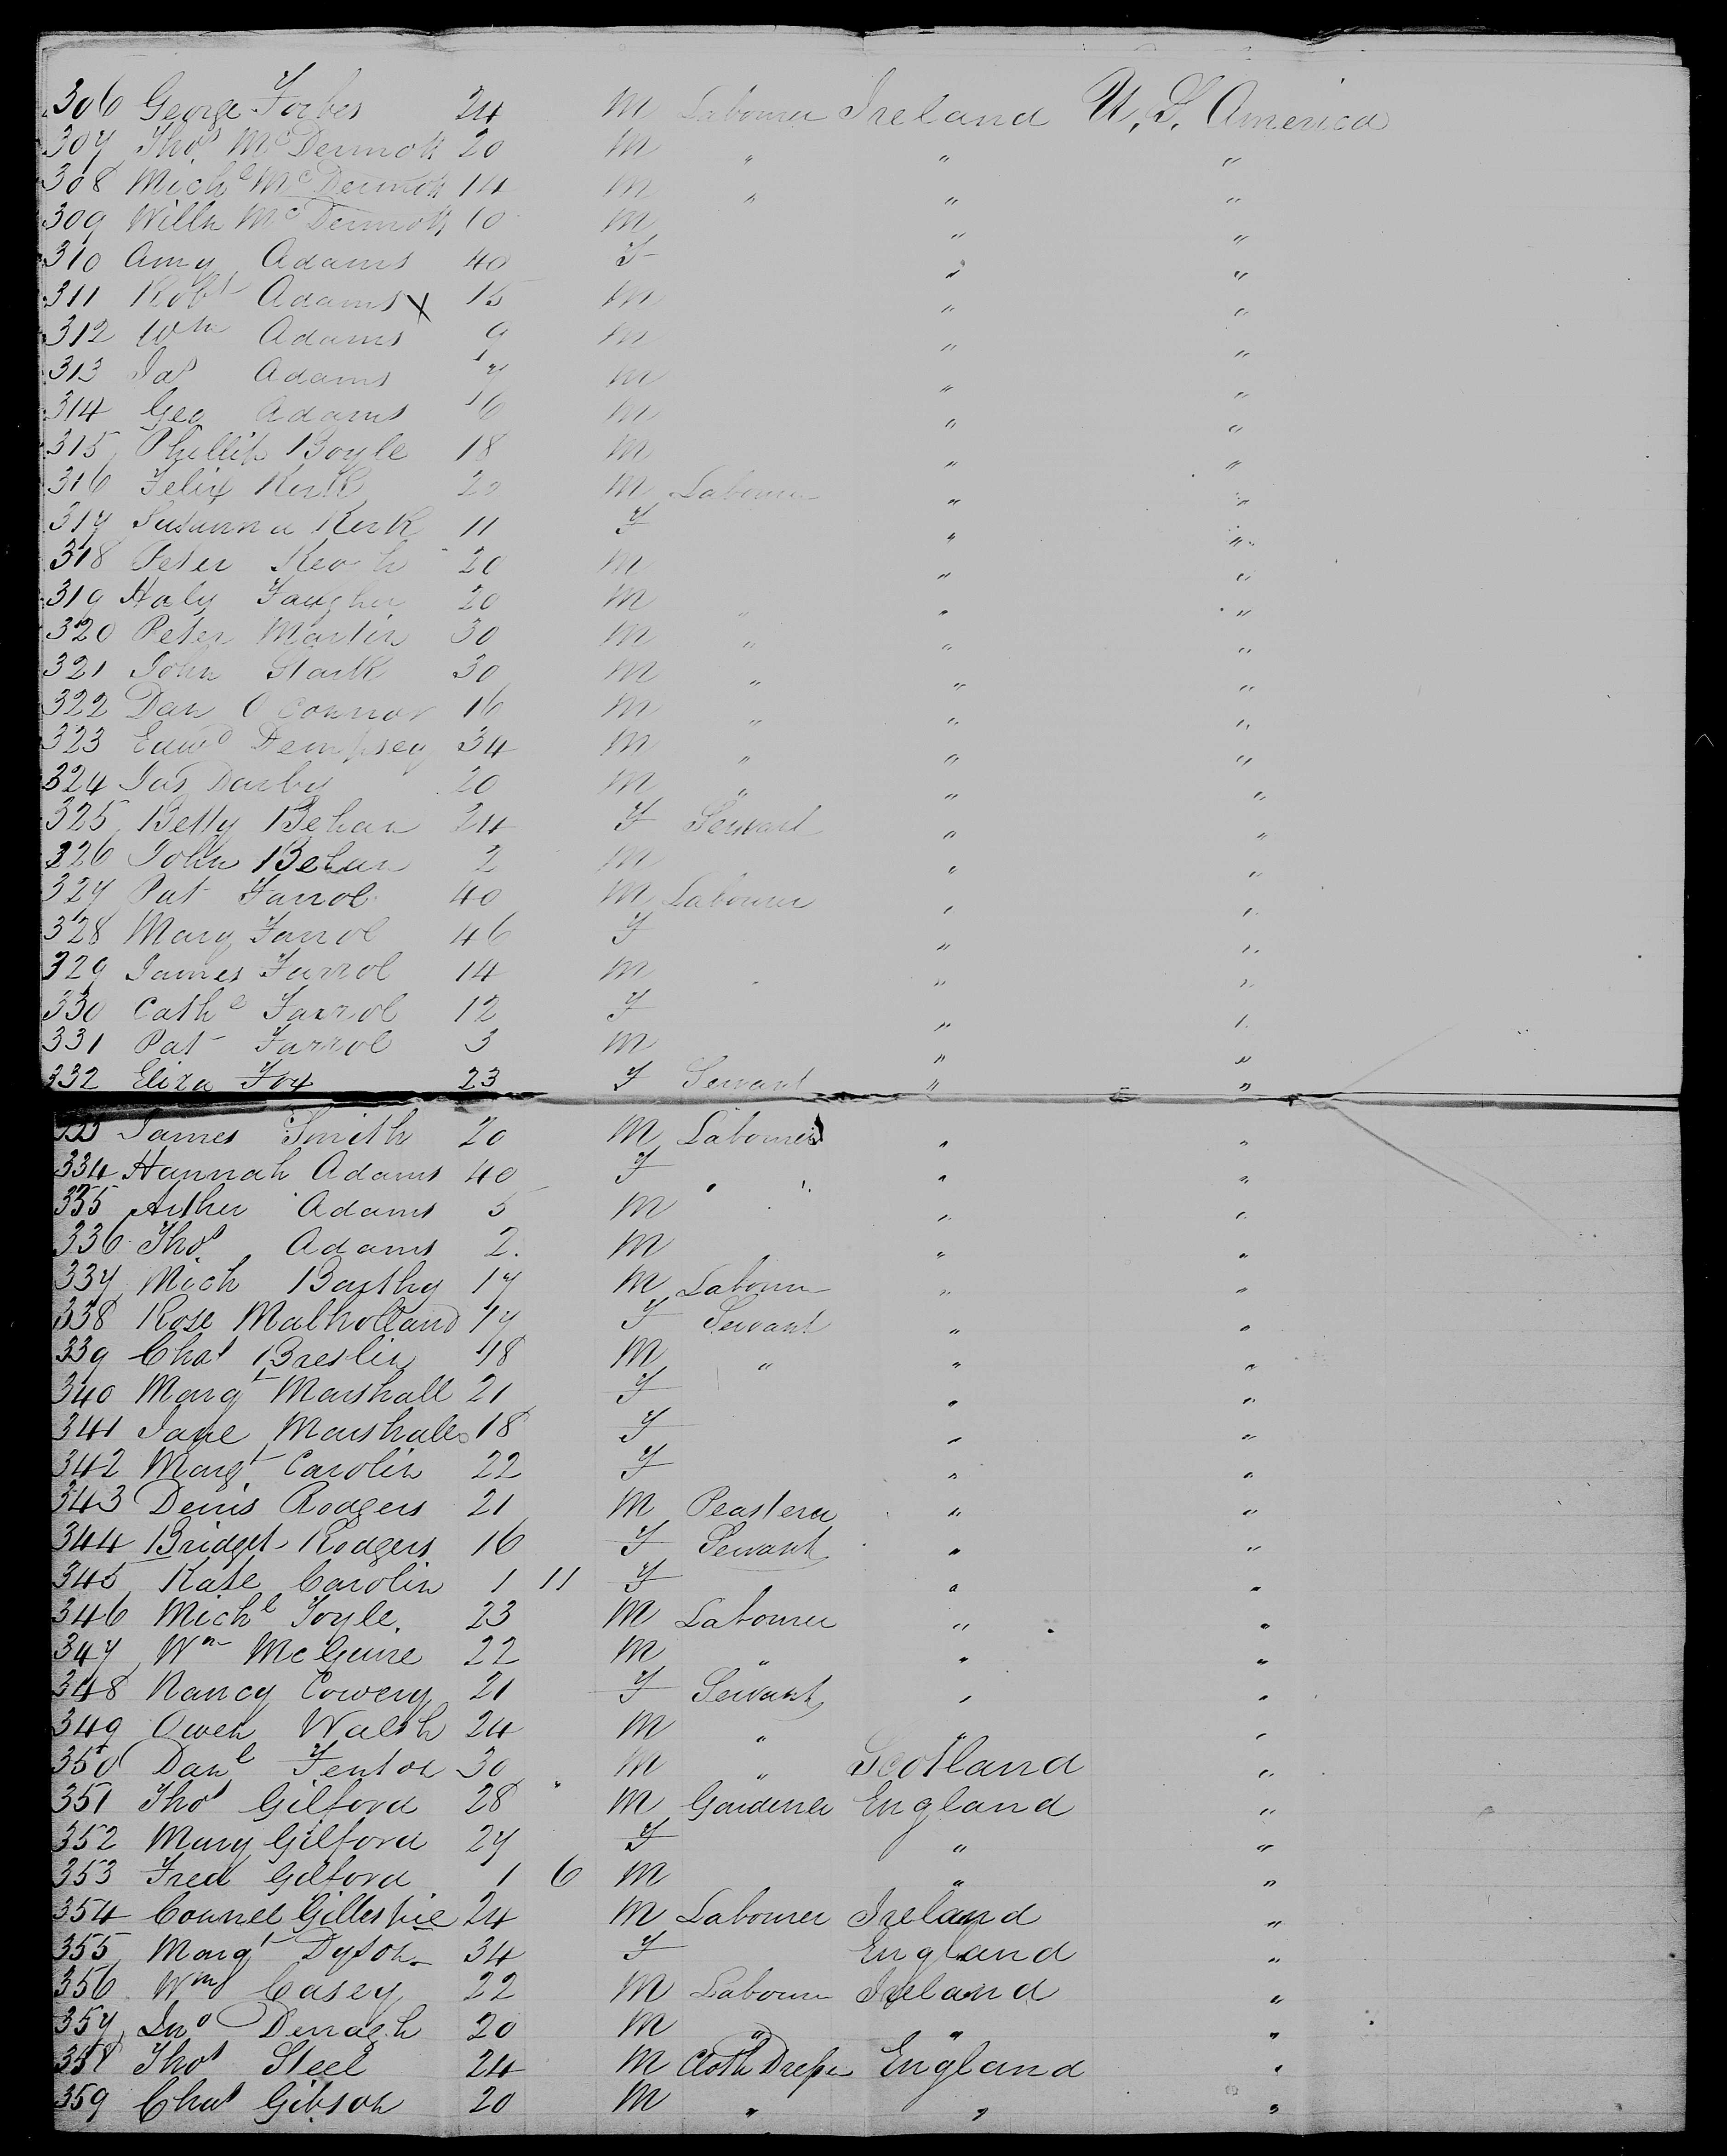 306 George Forbes 24 M Labourer Ireland U. S. America
307 Thos McDermott 20 M " " "
308 Michl McDermott 14 M " " "
309 Willm McDermott 10 M " "
310 Amy Adams 40 F " "
311 Robt Adams X 15 M " "
312 Wm Adams 9 M " "
313 Jas Adams 7 M " "
314 Geo Adams 6 M " "
315 Phillip Boyle 18 M " "
316 Felix Kirk 20 M Labourer " "
317 Susanna Kirk 11 F " "
318 Peter Keogh 20 M " "
319 Haly 20 M " " "
320 Peter Martin 30 M " " "
321 John Stark 30 M " " "
322 Dan O Connor 16 M " " "
323 Edwd Dempsey 34 M " " "
324 Jas Darby 20 M " " "
325 Betty Behan 24 F Servant " "
326 John Behan 2 M " "
327 Pat Farrol 40 M Labourer " "
328 Mary Farrol 46 F " "
329 James Farrol 14 M " "
330 Cathe Farrol 12 F " "
331 Pat Farrol 3 M " "
332 Eliza Fox 23 F Servant " "
333 James Smith 20 M Labourer " "
334 Hannah Adams 40 F " "
335 Arther Adams 5 M " "
336 Thos Adams 2. M " "
337 Mich Barthy 17 M Labourer " "
338 Rose Malholland 17 F Servant " "
339 Chas Breslin 18 M " " "
340 Margt Marshall 21 F " "
341 Jane Marshall 18 F " "
342 Margt Carolin 22 F " "
343 Denis Rodgers 21 M " "
344 Bridget Rodgers 16 F Servant " "
345 Kate Carolin 1 11 F " "
346 Michl Foyle. 23 M Labourer " "
347 Wm McGuire 22 M " " "
348 Nancy Cowery 21 F Servant " "
349 Owen Walsh 24 M " " "
350 Danl Fenton 30 M " Scotland "
351 Thos Gilford 28 M Gardener England "
352 Mary Gilford 27 F " "
353 Fred Gilford 1 6 M " "
354 Connel Gillespie 24 M Labourer Ireland "
355 Margt Dyson 34 F England "
356 Wm Casey 22 M Labourer Ireland "
357 Jno Derragh 20 M " " "
358 Thos Steel 24 M Cloth Dresser England "
359 Chas Gibson 20 M " " "